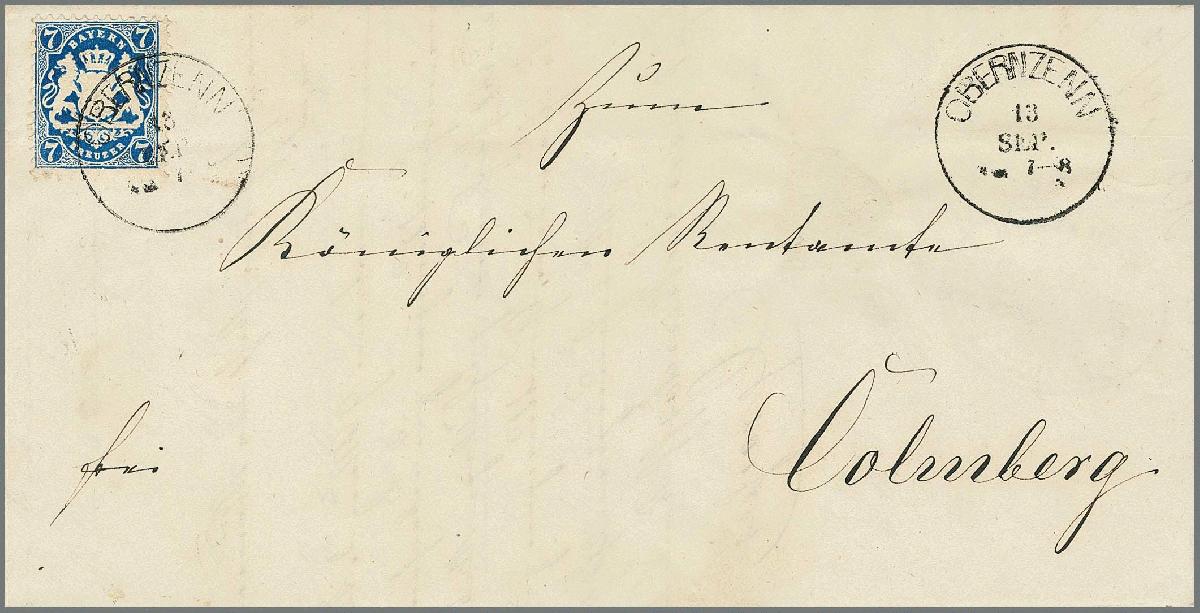 7 7
BAYERN
KREUZER
7 7
OBERNZENN
13
SEP.
OBERNZENN
13
SEP.
7-8
Zum
Königlichen Rentamte
Colmberg
frei